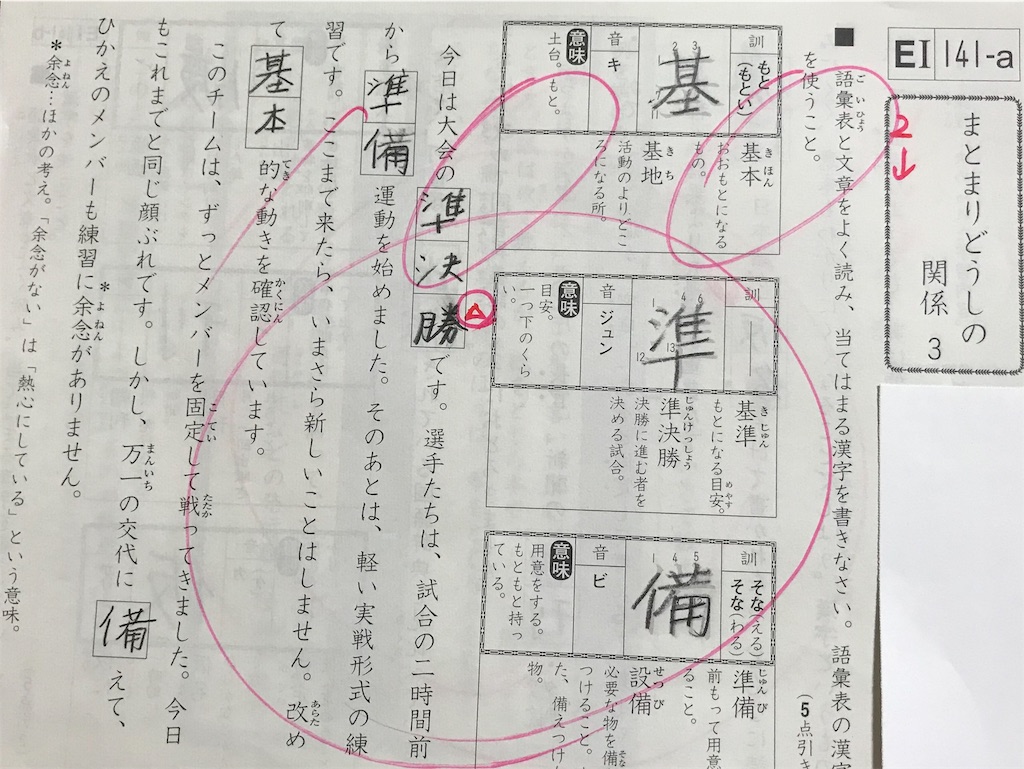 EI 141-a
2↓
まとまりどうしの
関係 3
■ 語彙表と文章をよく読み、当てはまる漢字を書きなさい。語彙表の漢字
を使うこと。
(5点引き
訓 もと (もとい)
基
音 キ
意味 土台。もと。
基本
おおもとになる
もの。
基地
活動のよりどこ
ろになる所。
訓 ―
準
音 ジュン
意味 目安。
一つ下のくら
い。
基準
もとになる目安。
準決勝
決勝に進む者を
決める試合。
訓 そな(える) そな(わる)
備
音 ビ
意味 用意をする。
もともと持っ
ている。
準備
前もって用意
ること。
設備
必要な物を備
つけること。
た、備えつけ
物。
今日は大会の準決勝です。選手たちは、試合の二時間前
から準備運動を始めました。そのあとは、軽い実戦形式の練
習です。ここまで来たら、いまさら新しいことはしません。改め
て基本的な動きを確認しています。
このチームは、ずっとメンバーを固定して戦ってきました。今日
もこれまでと同じ顔ぶれです。しかし、万一の交代に備えて、
ひかえのメンバーも練習に*余念がありません。
*余念…ほかの考え。「余念がない」は「熱心にしている」という意味。